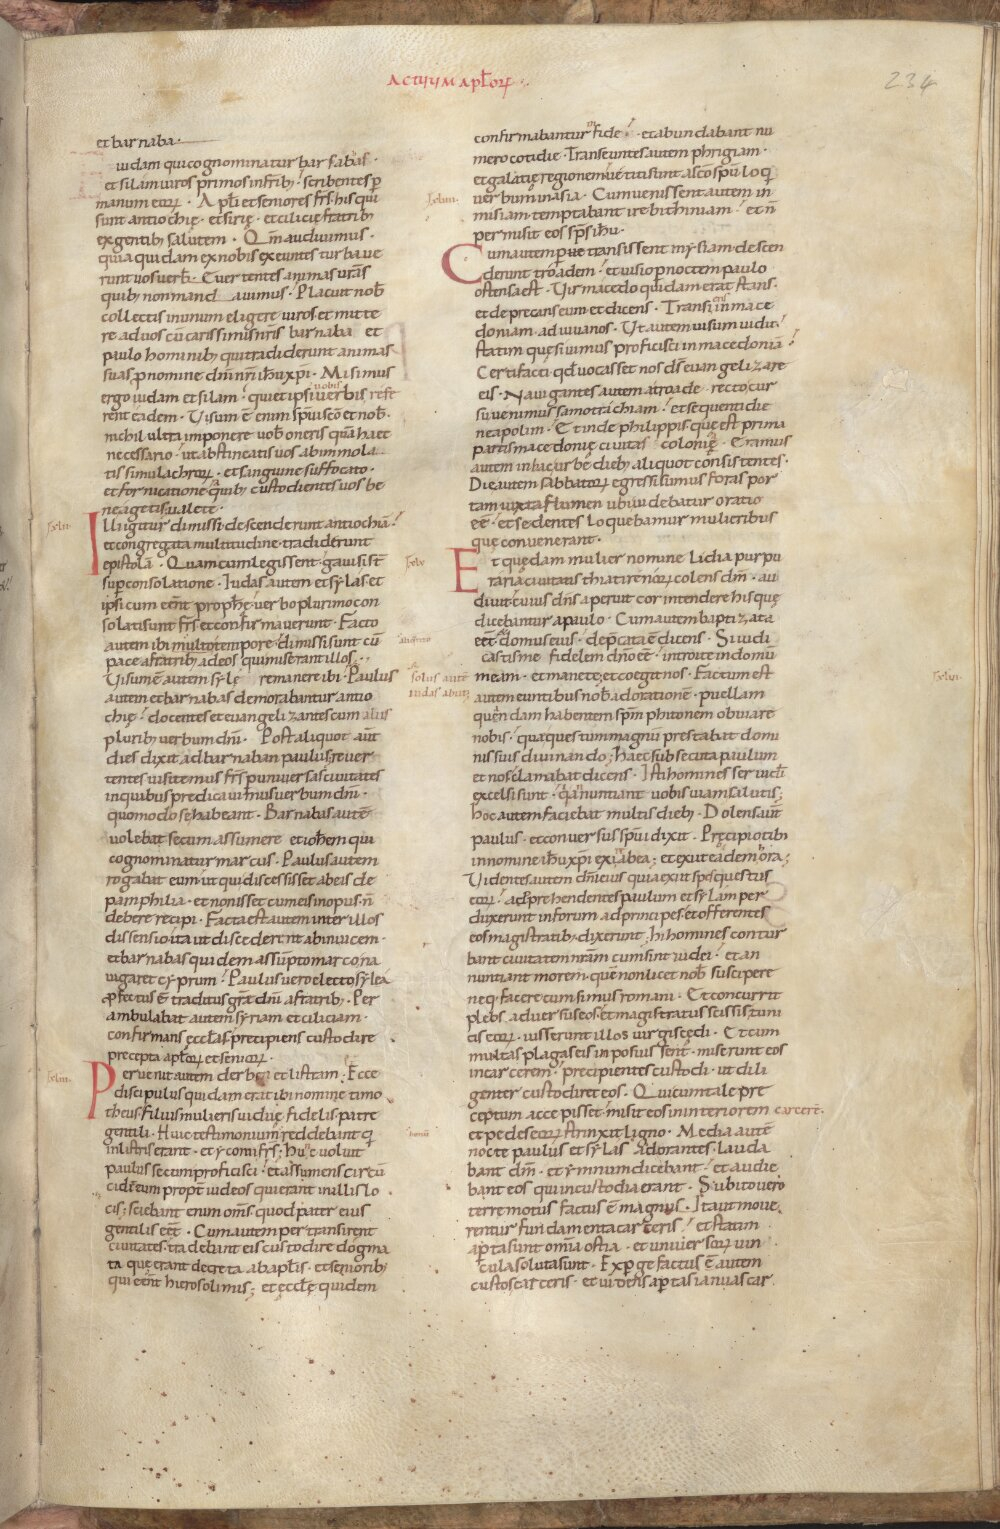 ACTUUM apl̄oꝝ
234
et barnaba·
iudam qui cognominatur barsabas·
et silam uiros primos in frīb; scribentes ꝑ
manum eoꝝ · Apl̄i et seniores frs̄ his qui
sunt antiochię · et sirię · et cilicię fratrib;
ex gentib; salutem · Qm̄ audiuimus ·
quia quidam ex nobis exeuntes turbaue
runt uos uerb̄ · Euertentes animas ur̄as
quib; non mandauimus · Placuit nob̄
collectis in unum eligere uiros et mitte
re ad uos cū carissimis nr̄is barnaba et
paulo hominib; qui tradiderunt animas
suas ꝓ nomine dn̄i nr̄i ih̄u xp̄i · Misimus
ergo iudam et silam · qui et ipsi uobis uerbis refe
rent eadem · Uisum ē enim sp̄ui sc̄o et nob̄ ·
nichil ultra imponere uob̄ oneris quā haec
necessario · ut abstineatis uos ab immola
tis simulachroꝝ · et sanguine suffocato ·
et fornicatione · a quib; custodientes uos be
ne agetis ualete ·
Illi igitur dimissi descenderunt antiochiā ·
et congregata multitudine tradiderunt
epistolā · Quam cum legissent · gauisi st̄
sup̄ consolatione · Iudas autem et sylas et
ipsi cum eēnt prophę̄ · uerbo plurimo con
solati sunt frs̄ et confirmauerunt · Facto
autem ibi multo tempore · dimissi sunt cū
pace a fratrib; ad eos qui miserant illos ·
Uisum ē autem sylę remanere ibi · Paulus
autem et barnabas demorabantur antio
chię · docentes et euangelizantes cum aliis
plurib; uerbum dn̄i · Post aliquot aūt
dies dixit ad barnaban paulus · reuer
tentes uisitemus frs̄ p̱ uniuersas ciuitates
in quibus predicauimus uerbum dn̄i ·
quomodo se habeant · Barnabas autē
uolebat secum assumere et ioh̄em qui
cognominatur marcus · Paulus autem
rogabat eum ut qui discessisset ab eis de
pamphilia · et non isset cum eis in opus · n̄
debere recipi · Facta est autem inter illos
dissensio ita ut discederent ab inuicem ·
et barnabas quidem assumpto marco na
uigaret cyprum · Paulus uero electo syla
ꝓfectus ē traditus grā̄e dn̄i a fratrib; · Per
ambulabat autem syriam et ciliciam ·
confirmans ęccl̄as p̄cipiens custodire
precepta apl̄oꝝ et senioꝝ ·
Peruenit autem derben et listram · Ecce
discipulus quidam erat ibi nomine timo
theus filius mulieris uiduę fidelis patre
gentili · Huic testimonium reddebant q̄
in listris erant · et yconi frs̄ · Hunc uoluit
paulus secum proficisci · et assumens circū
cidit eum propt̄ iudeos qui erant in illis lo
cis; sciebant enim om̄s quod pater eius
gentilis eēt · Cum autem pertransirent
ciuitates · tradebant eis custodire dogma
ta que erant decreta ab apl̄is · et seniorib;
qui eēnt hierosolimis; et eccl̄ę quidem
confirmabantur in fide · et abundabant nu
mero cotidie · Transeuntes autem phrigiam ·
et galatię regionem uetiti sunt a sc̄o sp̄u loq̄
uerbum in asia · Cum uenissent autem in
misiam · temptabant ire bithiniam · et n̄
permisit eos sp̄s ih̄u ·
Cum autem p̱transissent mysiam descen
derunt troadem · et uisio p̱ noctem paulo
ostensa est · Uir macedo quidam erat stans ·
et deprecans eum et dicens · Transiens in mace
doniam · adiuua nos · Ut autem uisum uidit ·
statim quęsiuimus proficisci in macedoniā ·
Certi facti qd̄ uocasset nos ds̄ euangelizare
eis · Nauigantes autem a troade · recto cur
su uenimus samotrachiam · et sequenti die
neapolim · Et inde philippis · quę est prima
partis macedonię ciuitas · colonię · Eramus
autem in hac urbe dieb; aliquot consistentes ·
Die autem sabbatoꝝ egressi sumus foras por
tam iuxta flumen ubi uidebatur oratio
eē · et sedentes loquebamur mulieribus
quę conuenerant ·
Et quędam mulier nomine lidia purpu
raria ciuitatis thiatirenoꝝ colens dm̄ · au
diuit · cuius dn̄s aperuit cor intendere his quę
dicebantur a paulo · Cum autem baptizata
eēt et domus eius · dep̄cata ē dicens · Si iudi
castis me fidelem dn̄o eē · introite in domū
meam · et manete; et coegit nos · Factum est
autem euntibus nob̄ ad orationē · puellam
quendam habentem sp̄m phitonem obuiare
nobis · quę questum magnū prestabat domi
nis suis diuinando; haec subsecuta paulum
et nos clamabat dicens · Isti homines serui di
excelsi sunt · qui annuntiant uobis uiam salutis;
hoc autem faciebat multis dieb; · Dolens aūt
paulus · et conuersus sp̄ui dixit · Precipio tibi
in nomine ih̄u xp̄i exire ab ea; et exiit eadem hora;
Uidentes autem dn̄i eius quia exiit spes questus
eoꝝ · adp̄rehendentes paulum et sylam per
duxerunt in forum ad principes · et offerentes
eos magistratib; dixerunt · hi homines contur
bant ciuitatem nr̄am cum sint iudei · et an
nuntiant morem · quē non licet nob̄ suscipere
neq; facere cum simus romani · Et concurrit
plebs aduersus eos · et magistratus scissis tuni
cis eoꝝ · iusserunt illos uirgis cędi · Et cum
multas plagas eis inposuissent · miserunt eos
in carcerem · precipientes custodi · ut dili
genter custodiret eos · Qui cum tale pre
ceptum accepisset · misit eos in interiorem carcerē ·
et pedes eoꝝ strinxit ligno · Media autē
nocte paulus et sylas adorantes · lauda
bant dm̄ · et ymnum dicebant · et audie
bant eos qui in custodia erant · Subito uero
terremotus factus ē magnus · Ita ut moue
rentur fundamenta carceris · et statim
ap̱ta sunt om̄ia ostia · et uniuersoꝝ uin
cula soluta sunt · Exp̱gefactus ē autem
custos carceris · et uidens ap̱tas ianuas car